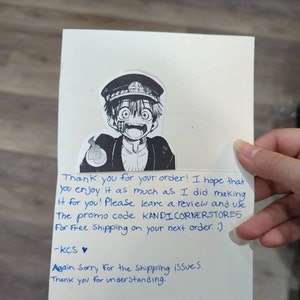 Thank you for your order! I hope that
you enjoy it as much as I did making
it for you! Please leave a review and use
The promo code KANDICORNERSTORES
For free shipping on your next order :)
-KCS ♥
Again sorry for the shipping issues.
Thank you for understanding.